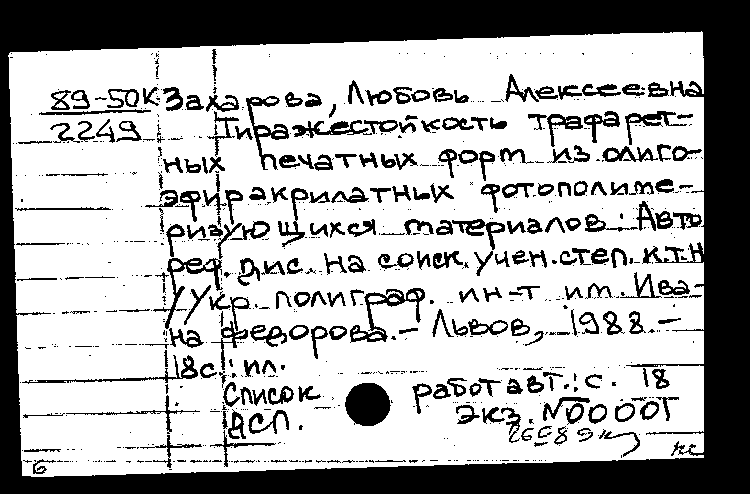 89-50К Захарова, Любовь Алексеевна
2249 Тиражестойкость трафарет-
ных печатных форм из олиго-
эфиракрилатных фотополиме-
ризующихся материалов: Авто
реф. дис. на соиск. учен. степ. к.т.н
/ Укр. полиграф. ин-т им. Ива-
на Федорова. - Львов, 1988. -
18 с.: ил.
Список работ авт.: с. 18
ДСП. Экз. N00001
кс
б